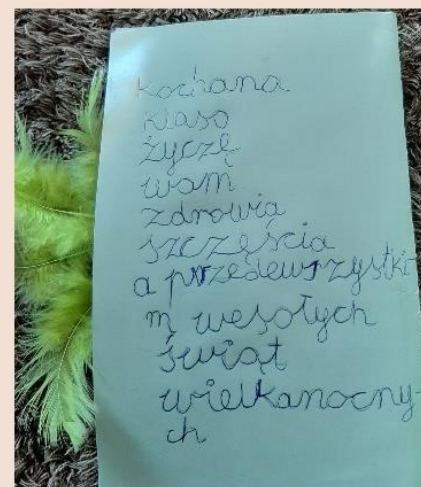 kochana
klaso
życzę
wam
zdrowia
szczęścia
a przedewszystki
m wesołych
świąt
wielkanocny-
ch